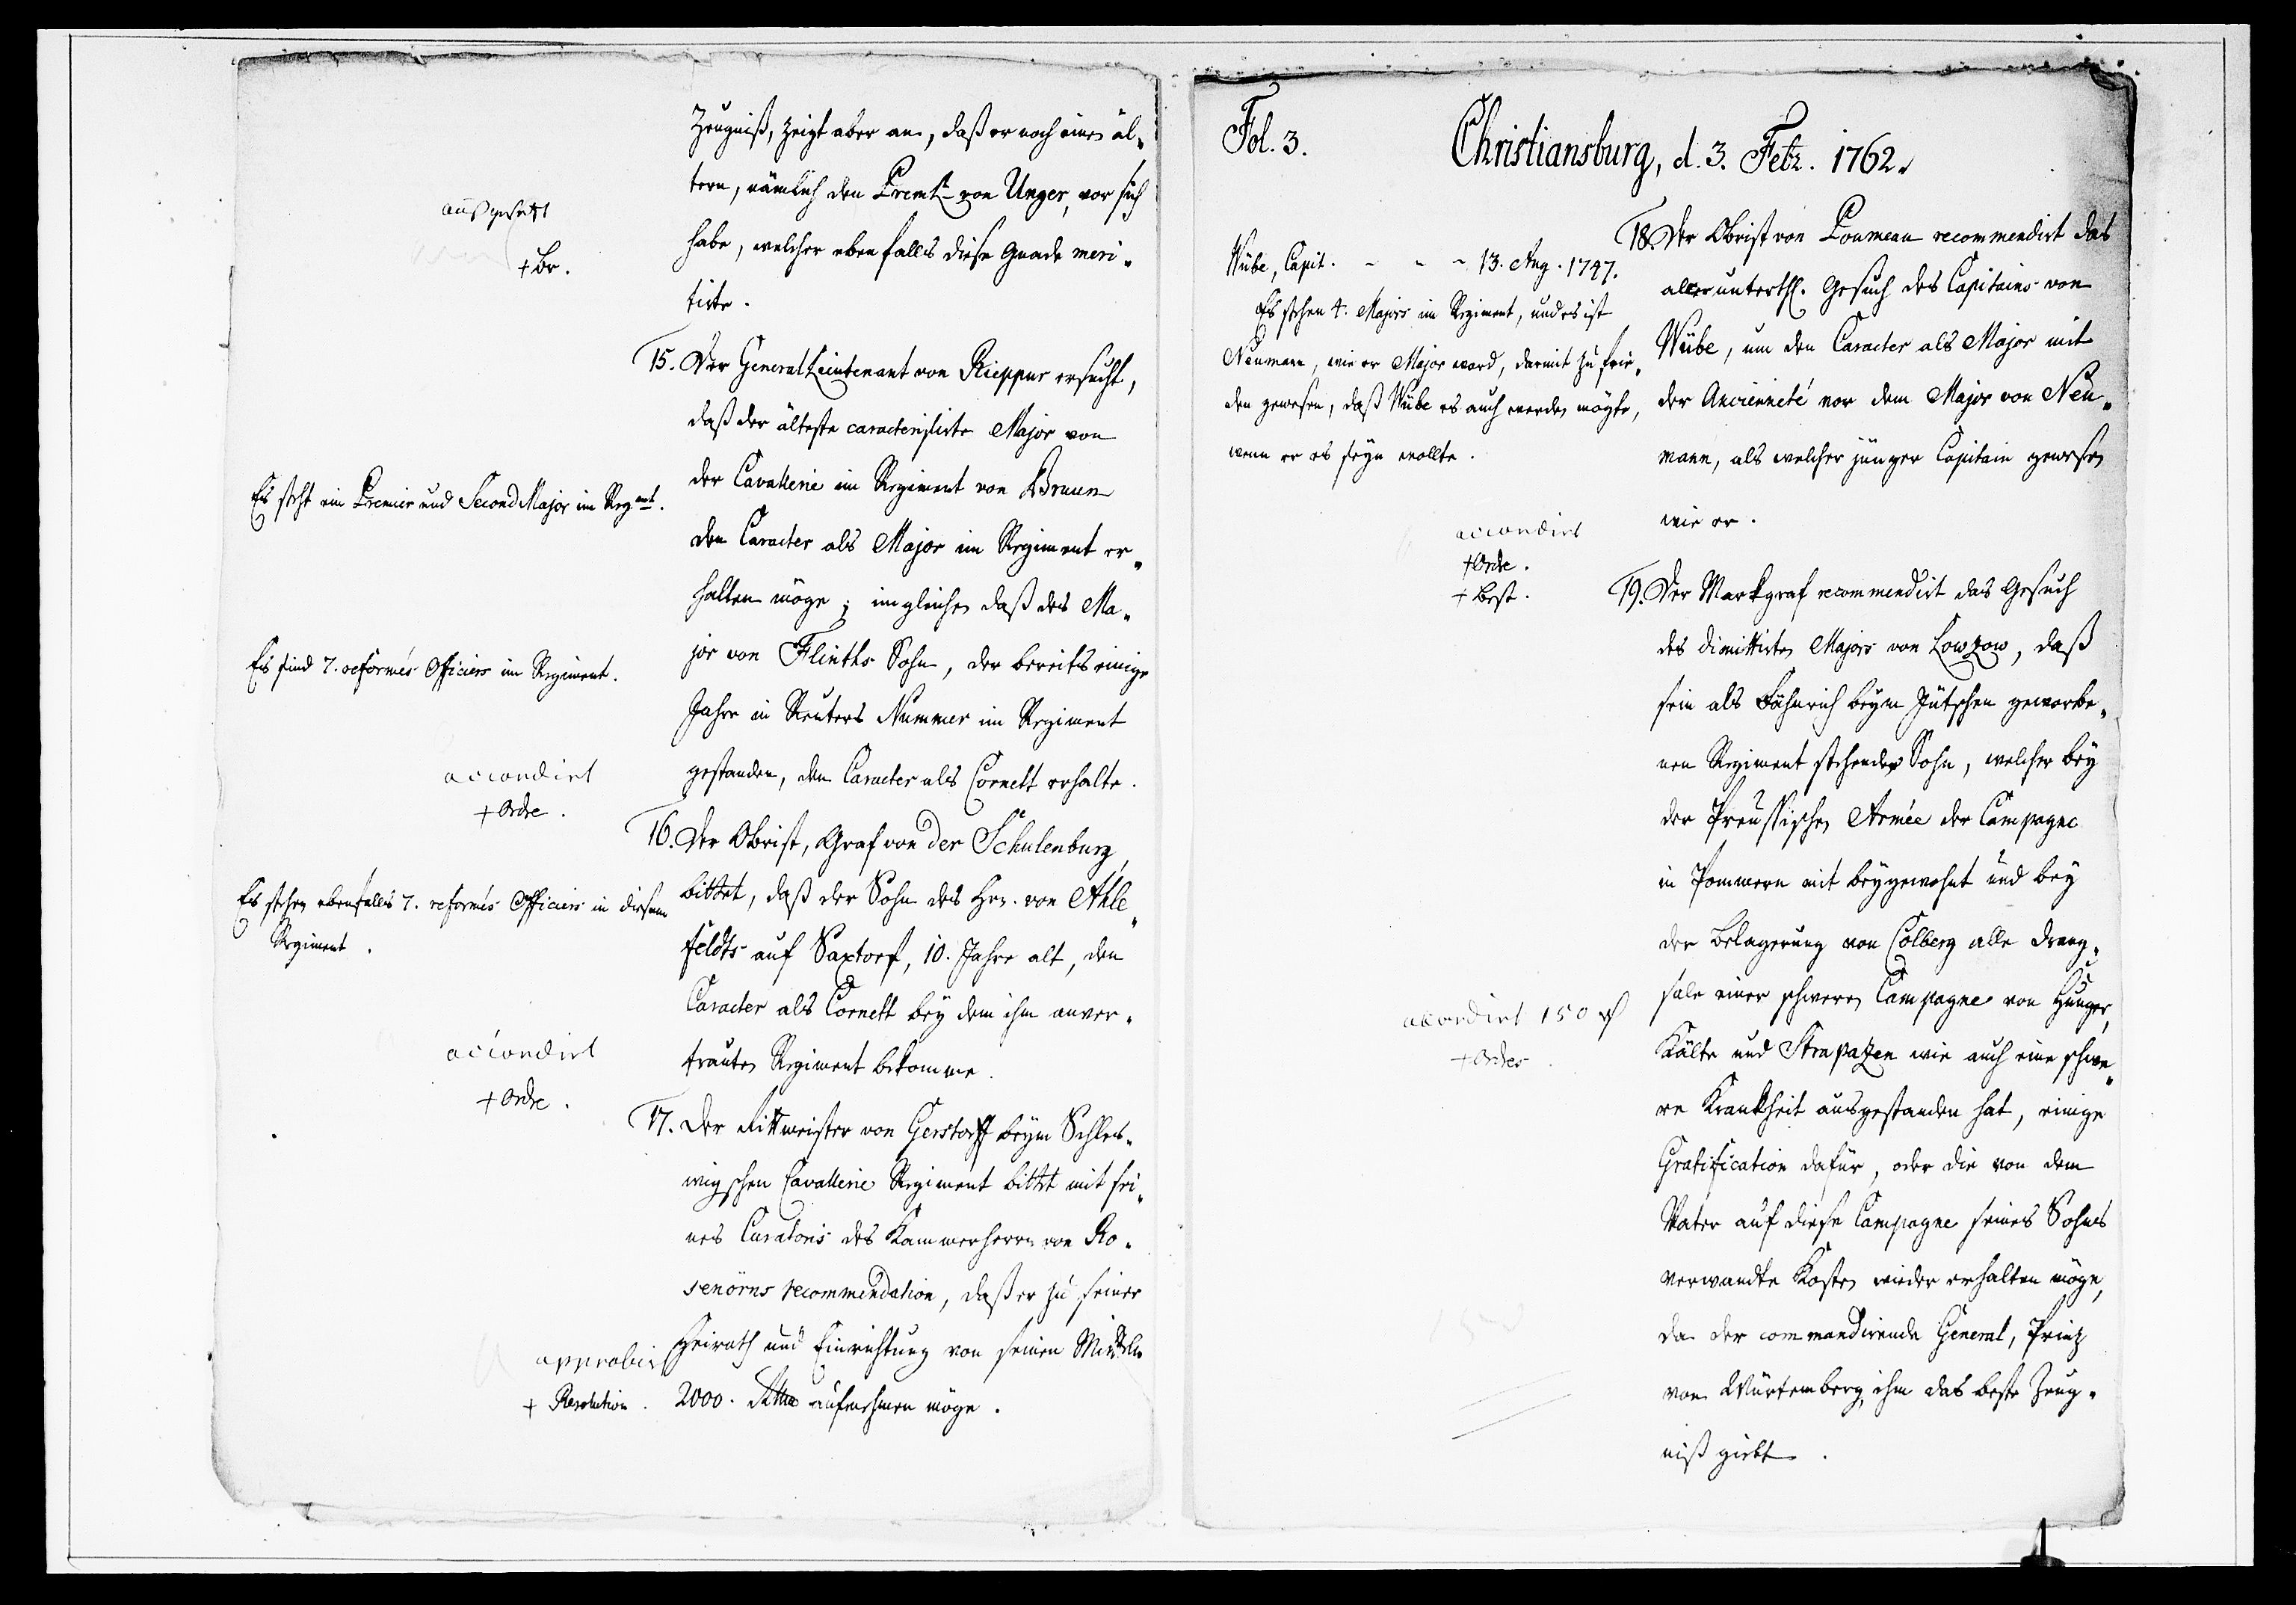 Zeugniß, zeigt aber an, daß er noch einen äl„
tern, nämlich den Premlt von Unger, vor sich
habe, welcher ebenfalls diese Gnade meri„
tirte.
ausgesetzt
+ Br.
15. Der General Lieutenant von Rieppur ersucht,
daß der älteste caracterisirte Major von
der Cavallerie im Regiment von Bruun
den Caracter als Major im Regiment er„
halten möge; imgleichen daß des Ma„
jor von Flinths Sohn, der bereits einige
Jahre in Reuters Nummer im Regiment
gestanden, den Caracter als Cornett erhalte.
Es steht ein Premier und Second Major im Regmt.
Es sind 7. reformés Officiers im Regiment.
accordirt
+ Ordre.
16. Der Obrist, Graf von der Schulenburg,
bittet, daß der Sohn des Hrn. von Ahle„
feldts auf Saxtorf, 10. Jahre alt, den
Caracter als Cornett bey dem ihm anver„
trauten Regiment bekomme.
Es stehen ebenfalls 7. reformés Officiers in diesem
Regiment.
accordirt
+ Ordre.
17. Der Rittmeister von Gerstorff beym Schles„
wigschen Cavallerie Regiment bittet mit sei„
nes Curatoris des Kammerherrn von Ro„
senörns recommendation, daß er zu seiner
Heirath und Einrichtung von seinen Mitteln
2000. Rthlr aufnehmen möge.
approbirt
+ Resolution.
Fol. 3.
Christiansburg, d. 3. Febr. 1762.
18. Der Obrist von Poumeau recommendirt das
allerunterth. Gesuch des Capitains von
Wübe, um den Caracter als Major mit
der Ancienneté vor dem Major von Neu„
mann, als welcher jünger Capitain gewesen
wie er.
Wübe, Capit. - - - 13. Aug. 1747.
Es stehen 4. Majors im Regiment, und es ist
Neumann, wie er Major ward, darmit zufrie„
den gewesen, daß Wübe es auch werden mögte,
wenn er es seyn wollte.
accordirt
+ Ordre.
+ Best.
19. Der Markgraf recommendirt das Gesuch
des dimittirten Majors von Lowzow, daß
sein als Fähnrich beym Jütschen geworbe„
nen Regiment stehender Sohn, welcher bey
der Preussischen Armée der Campagne
in Pommern mit beygewohnt und bey
der Belagerung von Colberg alle Drang„
sale einer schweren Campagne von Hunger,
Kälte und Strapatzen wie auch eine schwe„
re Krankheit ausgestanden hat, einige
Gratification dafür, oder die von dem
Vater auf diese Campagne seines Sohnes
verwandte Kosten wieder erhalten möge,
da der commandirende General, Prinz
von Würtemberg, ihm das beste Zeug„
niß giebt.
accordirt 150 rth
+ Ordres